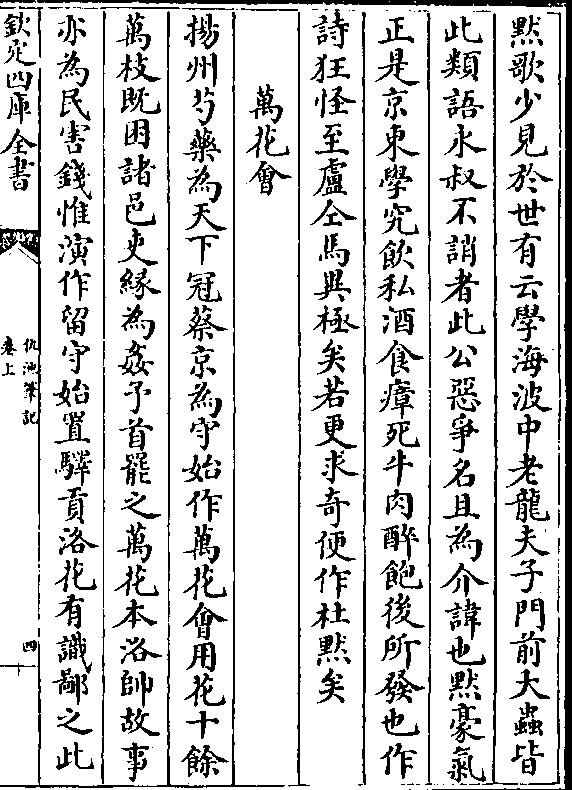 黙歌少見於世有云學海波中老龍夫子門前大蟲皆
此類語永叔不誚者此公惡爭名且為介諱也黙豪氣
正是京東學究飲私酒食瘴死牛肉醉飽後所發也作
詩狂怪至盧仝馬異極矣若更求奇便作杜黙矣
萬花會
揚州芍藥為天下冠蔡京為守始作萬花會用花十餘
萬枝既困諸邑吏緣為姦予首罷之萬花本洛帥故事
亦為民害錢惟演作留守始置驛貢洛花有識鄙之此
欽定四庫全書
仇池筆記
卷上
四